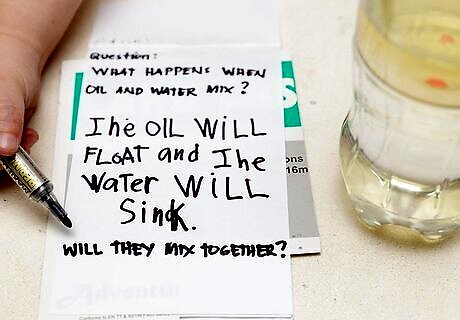 Question:
WHAT HAPPENS WHEN
OIL AND WATER MIX?
The OIL WILL
FLOAT and The
Water WILL
Sink.
WILL THEY MIX TOGETHER?
S
ons
16m
Adventu